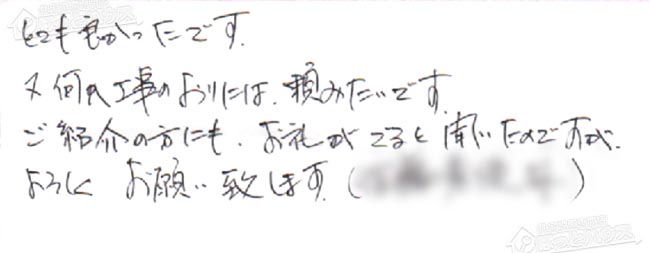 とても良かったです。
又何か工事のおりには、頼みたいです。
ご紹介の方にも、お礼がでると聞いたのですが、
よろしくお願い致します。(
)